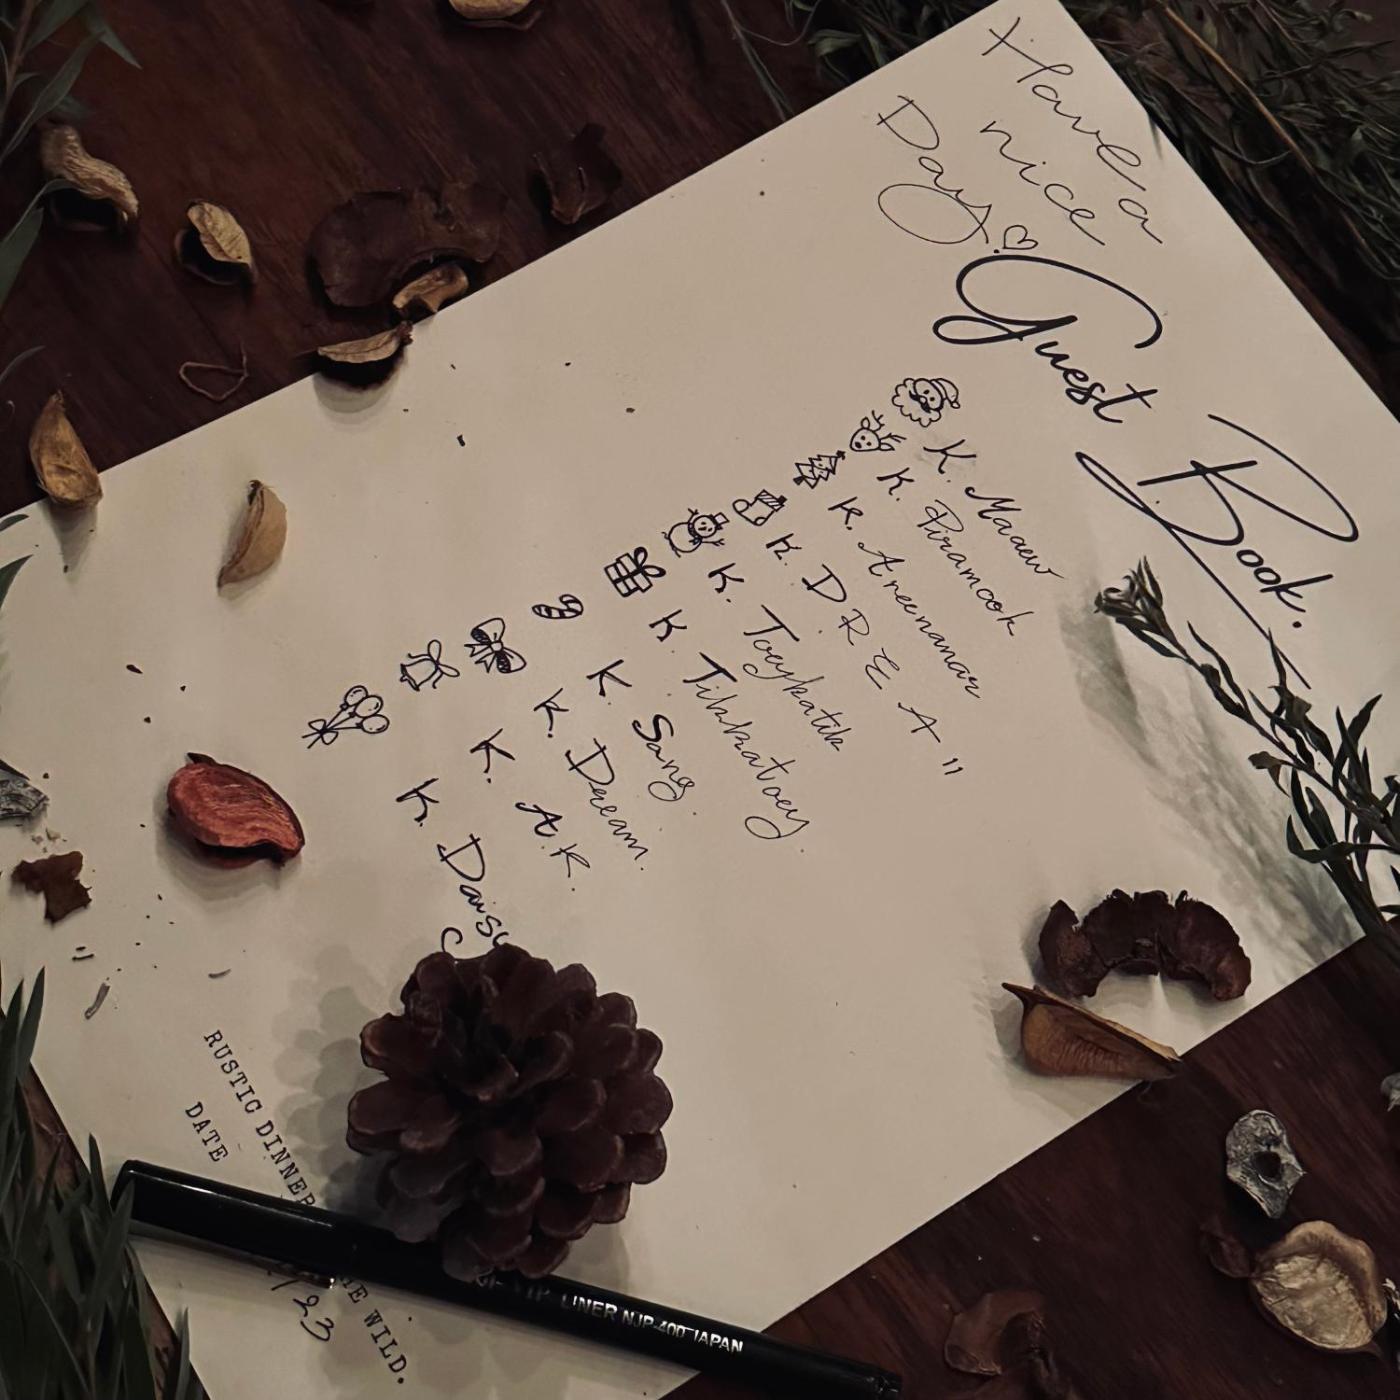 Have a
nice
Day!
Guest Book.
K. Maaew
K. Piramook
K. Areenanar
K. DREA"
K. Toeykatik
K. Tikkatoey
K. Sang
K. Dream.
K. A.K.
K. Daisy
RUSTIC DINNER
WILD.
DATE
/23
LINER NJP-400 JAPAN